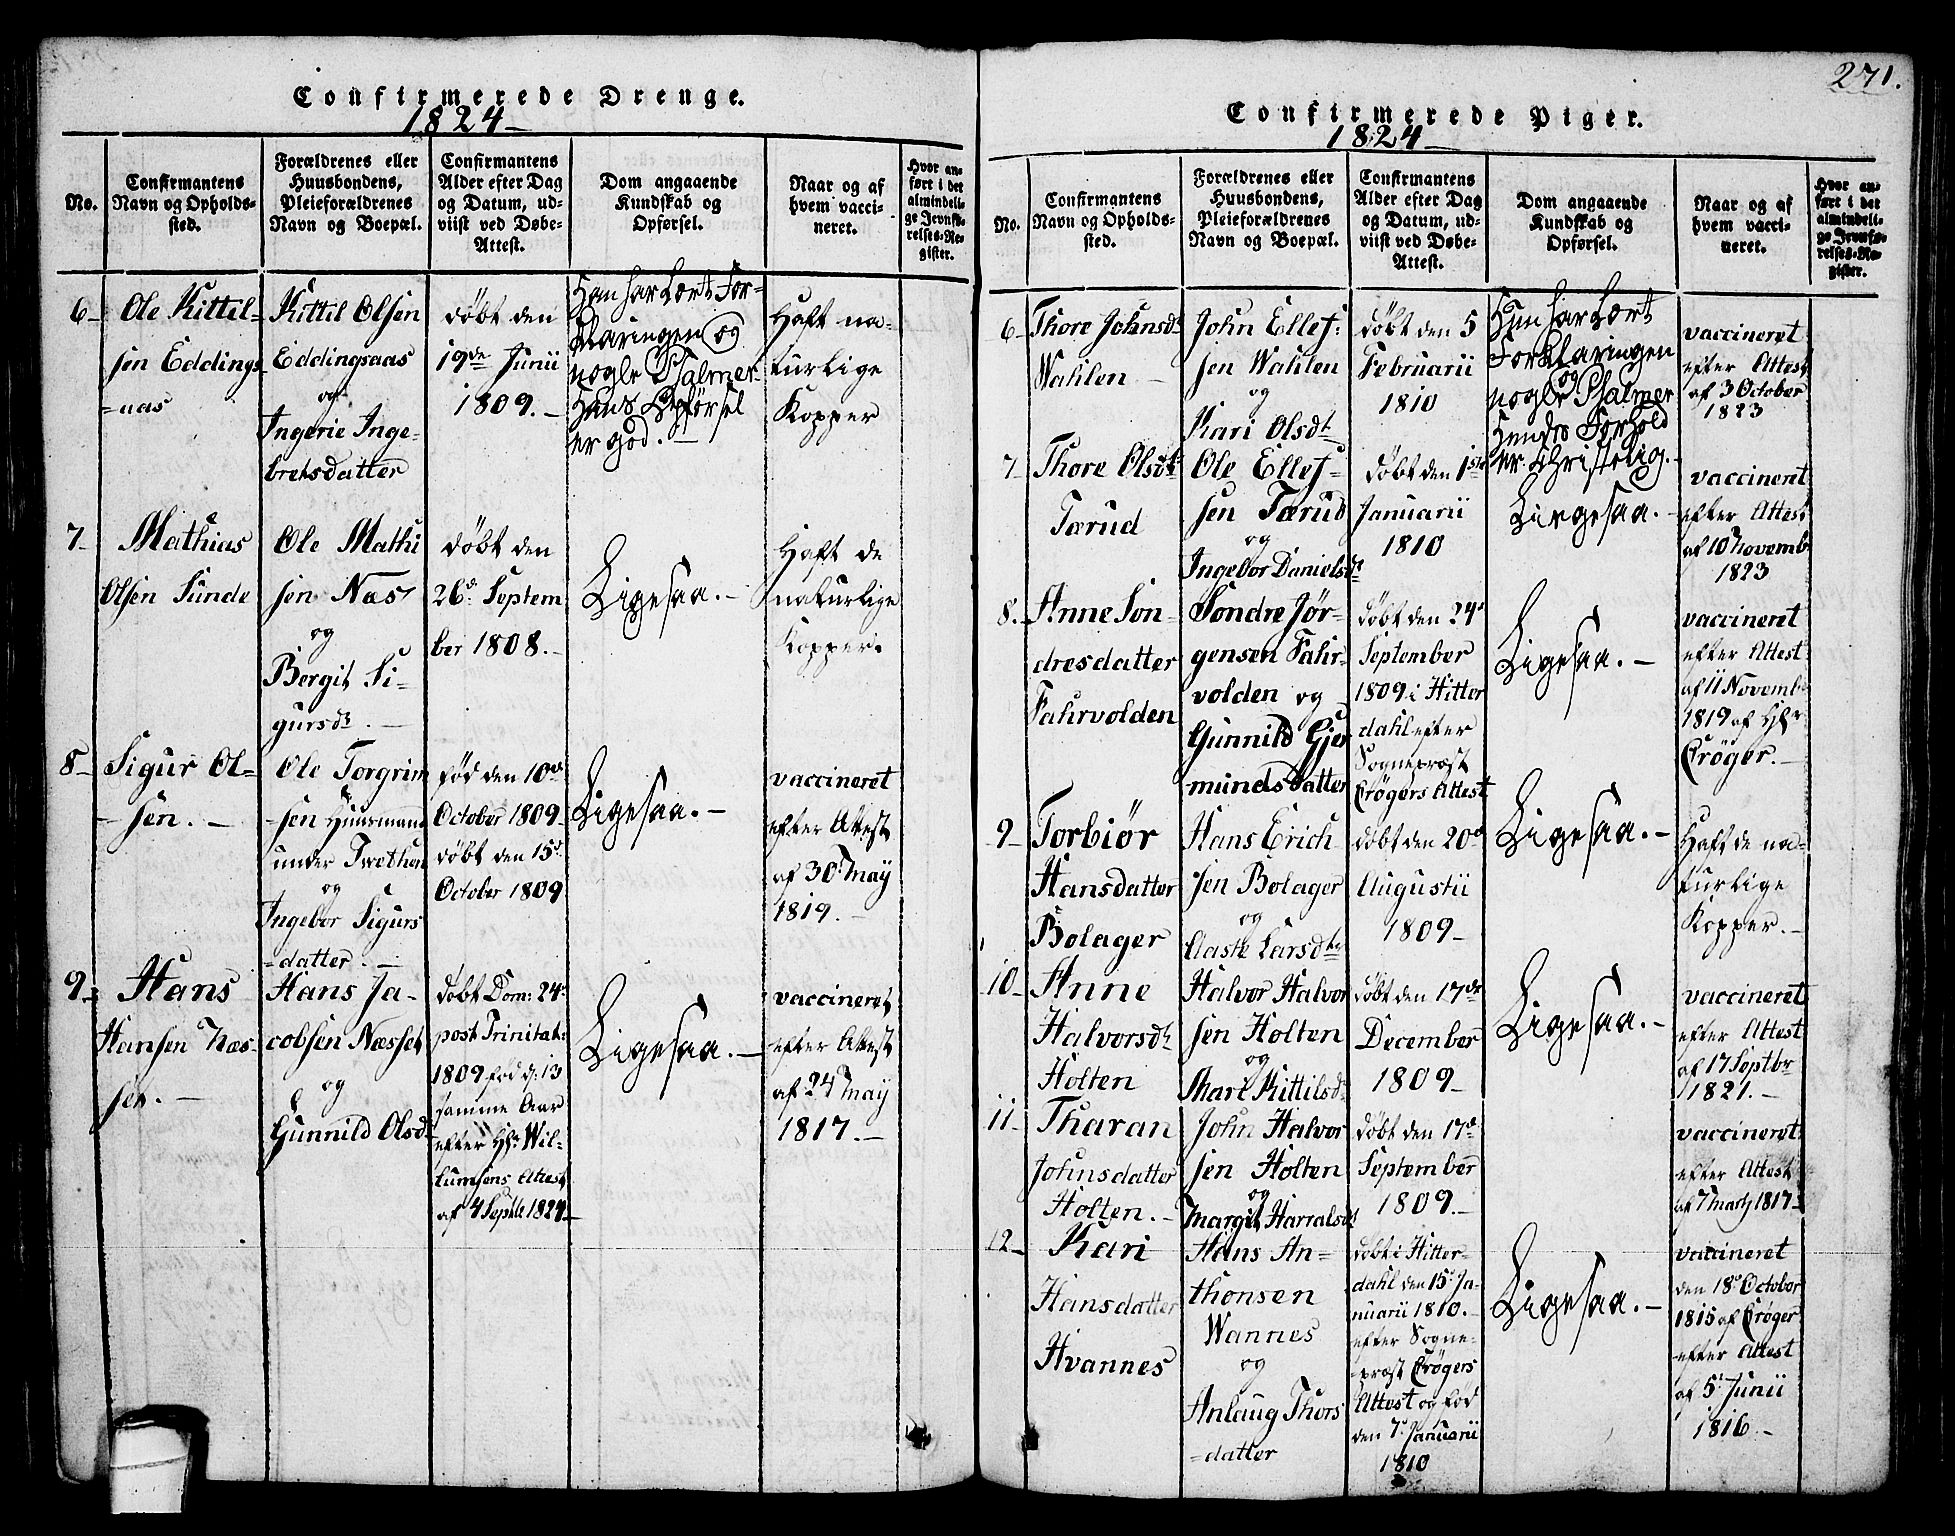 Confirmerede Drenge.
1824
No.
Confirmantens
Navn og Opholds-
sted.
Forældrenes eller
Huusbondens,
Pleieforældrenes
Navn og Boepæl.
Confirmantens
Alder efter Dag
og Datum, ud-
viist ved Døbe-
Attest.
Dom angaaende
Kundskab og
Opførsel.
Naar og af
hvem vacci-
neret.
Hvor an-
ført i det
almindeli-
ge Jevnfø-
relses-Re-
gister.
6
Ole Kittel-
sen Eddings
=aas
Kittil Olsen
Eddingsaas
og
Ingerie Inge-
bretsdatter
døbt den
19de Junii
1809.
Han har Lært For-
klaringen og
nogle Psalmer
Hans Opførsel
er god.
Haft na-
turlige
Kopper
7
Mathias
Olsen Sunde
Ole Mathi
sen Næs
og
Bergit Si-
gursdr.
døbt den
26d. Septem
ber 1808.
Ligesaa.
Haft de
naturlige
Kopper.
8
Sigur Ol-
-sen.
Ole Torgrim
-sen Huusmand
under Twethen
og
Ingebor Sigurs
=datter.
fød den 10de
October 1809
døbt den 15d.
October 1809
Ligesaa.
vaccineret
efter Attest
af 30 May
1819.
9
Hans
Hansen Næs-
set.
Hans Ja-
cobsen Næsset
og
Gunnild Olsd.
døbt Dom: 24d.
post Trinitat:
1809 fød d: 13
samme Aar
efter Hr. Wil-
lumsens Attest
af 4 Septbr 1824
Ligesaa.
vaccineret
efter Attest
af 24 May
1817.
271.
Confirmerede Piger.
1824
No.
Confirmantens
Navn og Opholds-
sted.
Forældrenes eller
Huusbondens,
Pleieforældrenes
Navn og Boepæl.
Confirmantens
Alder efter Dag
og Datum, ud-
viist ved Døbe-
Attest.
Dom angaaende
Kundskab og
Opførsel.
Naar og af
hvem vacci-
neret.
Hvor an-
ført i det
almindeli-
ge Jevnfø-
relses-Re-
gister.
6
Thore Johnsdr
Wahlen
John Ellef-
sen Wahlen
og
Kari Olsdr
døbt den 5
Februarii
1810
Hun har Lært
Forklaringen
og
nogle Psalmer
Hendes Forhold
er Christelig.
vaccineret
efter Attest
af 3 October
1823
7
Thore Olsdr
Tærud
Ole Ellef-
sen Tærud
og
Ingebor Danielsdr
døbt den 1ste
Januarii
1810
Ligesaa.
vaccineret
efter Attest
af 10 Novemb
1823
8.
Anne Son-
dresdatter
Fahrvolden
Sondre Jør-
gensen Fahr-
volden og
Gunnild Gjer
mundsdatter
døbt den 24d
September
1809 i Hitter
dahl efter
Sogneprost
Crøgers Attest
Ligesaa.
vaccineret
efter Attest
af 11 Novemb
1819 af Hr.
Crøger.
9
Torbiør
Hansdatter
Bolager
Hans Erich
sen Bolager
og
Aaste Larsdtr
døbt den 20d
Augustii
1809
Ligesaa.
Haft de na-
turlige
Kopper.
10
Anne
Halvorsdr
Holten
Halvor Halvor
sen Holten
og
Mari Kittilsdr
døbt den 17de
December
1809
Ligesaa.
vaccineret
efter Attest
af 17 Septbr
1821.
11
Tharan
Johnsdatter
Holten.
John Halvor
sen Holten
og
Margit Harralsdr
døbt den 17d
September
1809.
vaccineret
efter Attest
af 7 Marty 1817
12
Kari
Hansdatter
Hvannes
Hans An=
thonsen
Wannes
og
Anlaug Thors
=datter
døbt i Hitter-
dahl den 15d. Ja-
nuarii 1810.
efter Sogne-
prost Crøgers
Attest og fød
den 7d. Januarii
1810
Ligesaa.
vaccineret
den 18d October
1815 af Crøger
efter Attest
af 5 Junii
1816